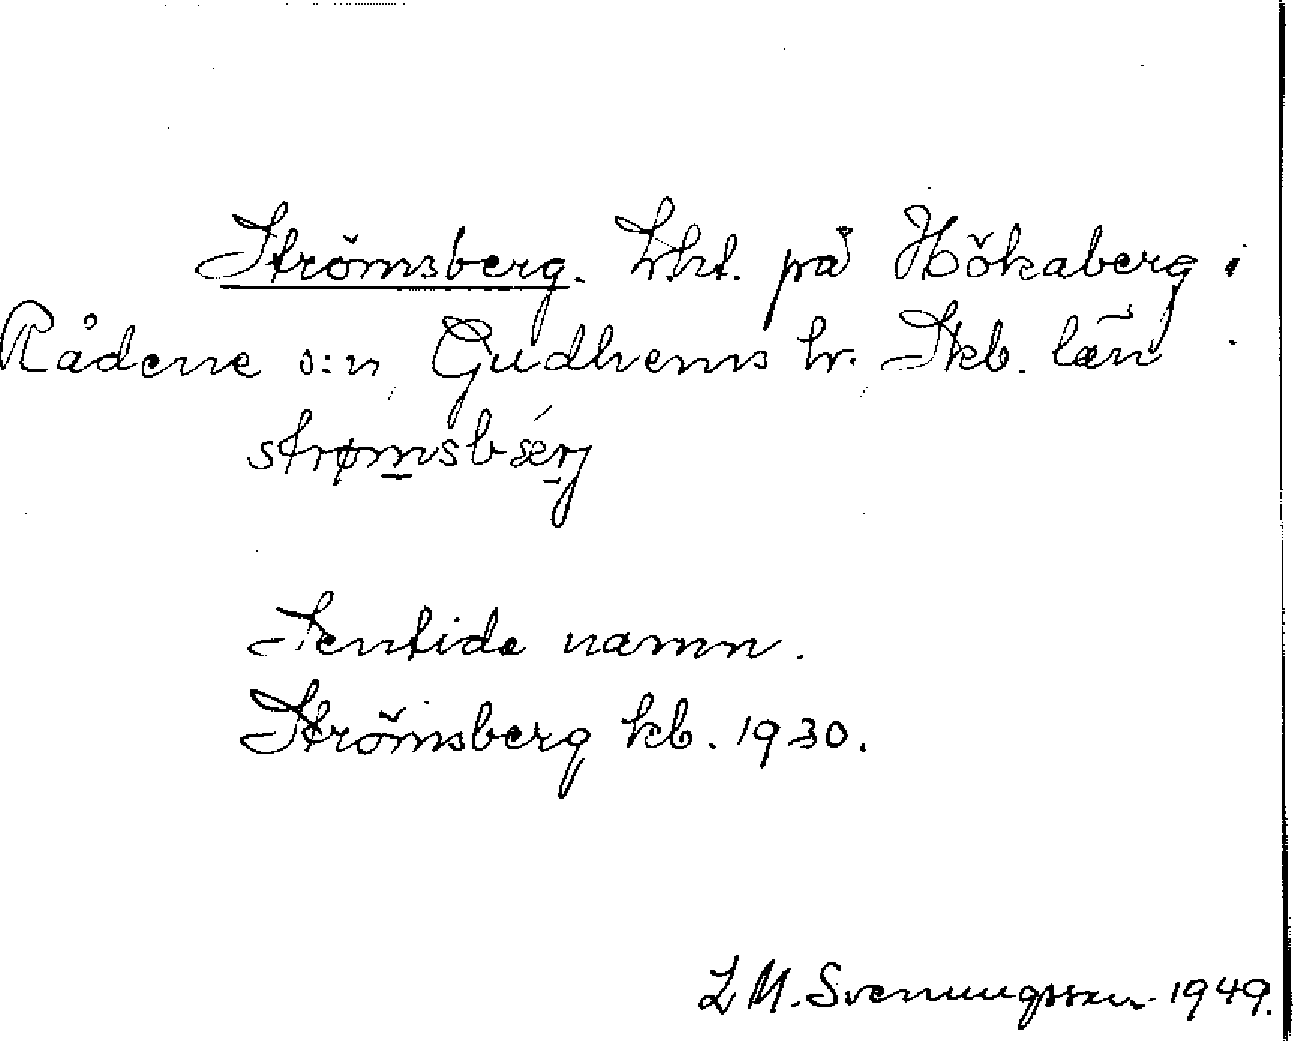 Strömsberg. Lht. på Hökaberg i
Rådene s:n Gudhems hr. Skb. län
strømsbærj
Sentida namn.
Strömsberg kb. 1930.
L M. Svenungsson 1949.